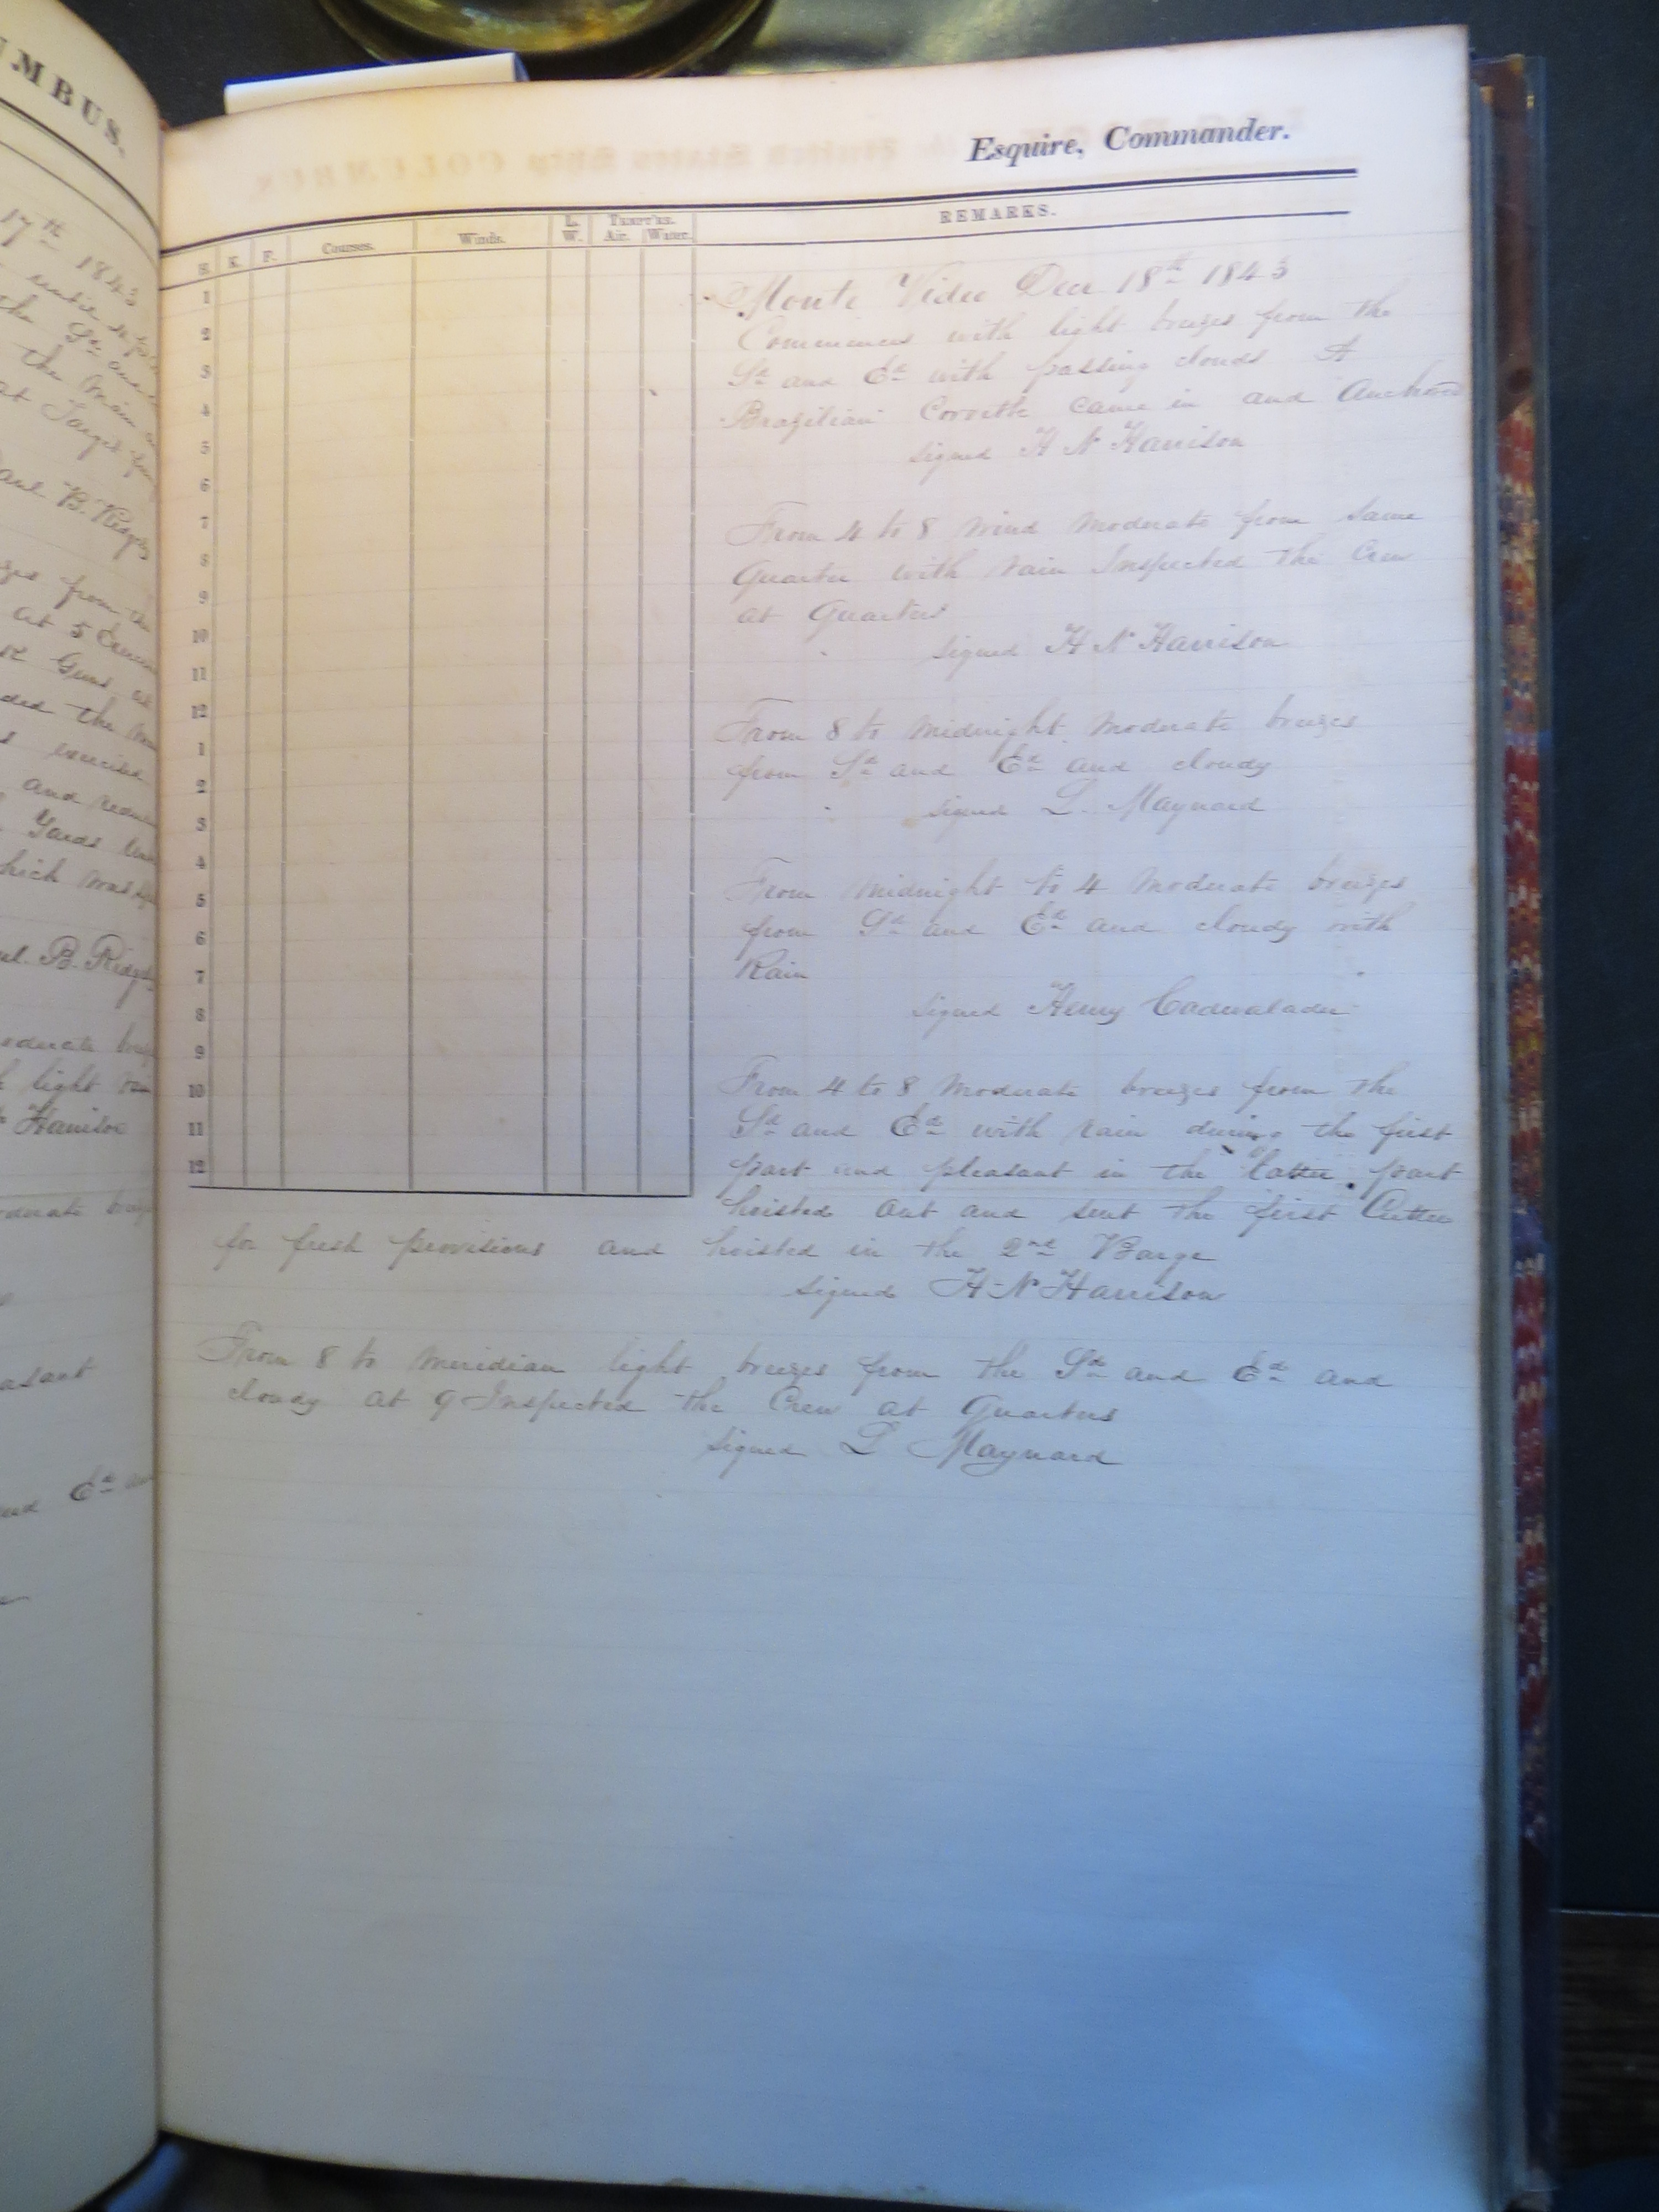 UMBUS.
17th 1843
the Sd and
the Main
at Target
B. Ridgely
from the
at 5 Exercised
Guns at
ded the
exercised
and
Yards
which was
B. Ridgely
moderate breezes
light rain
Harrison
moderate breezes
pleasant
and Ed and
Esquire, Commander.
H. K. F. Courses. Winds. L. W. Temp're. Air. Water. REMARKS.
1
2
3
4
5
6
7
8
9
10
11
12
1
2
3
4
5
6
7
8
9
10
11
12
Monte Video Dec 18th 1843
Commences with light breezes from the
Sd and Ed with passing clouds A
Brazilian Corvette came in and Anchored
signed H N Harrison
From 4 to 8 wind moderate from same
Quarter with rain Inspected the Crew
at Quarters
signed H N Harrison
From 8 to midnight moderate breezes
from Sd and Ed and cloudy
signed L. Maynard
From midnight to 4 moderate breezes
from Sd and Ed and cloudy with
Rain
signed Henry Cadwalader
From 4 to 8 moderate breezes from the
Sd and Ed with rain during the first
part and pleasant in the latter part
hoisted out and sent the first Cutter
for fresh provisions and hoisted in the 2nd Barge
signed H N Harrison
From 8 to meridian light breezes from the Sd and Ed and
cloudy at 9 Inspected the Crew at Quarters
signed L Maynard